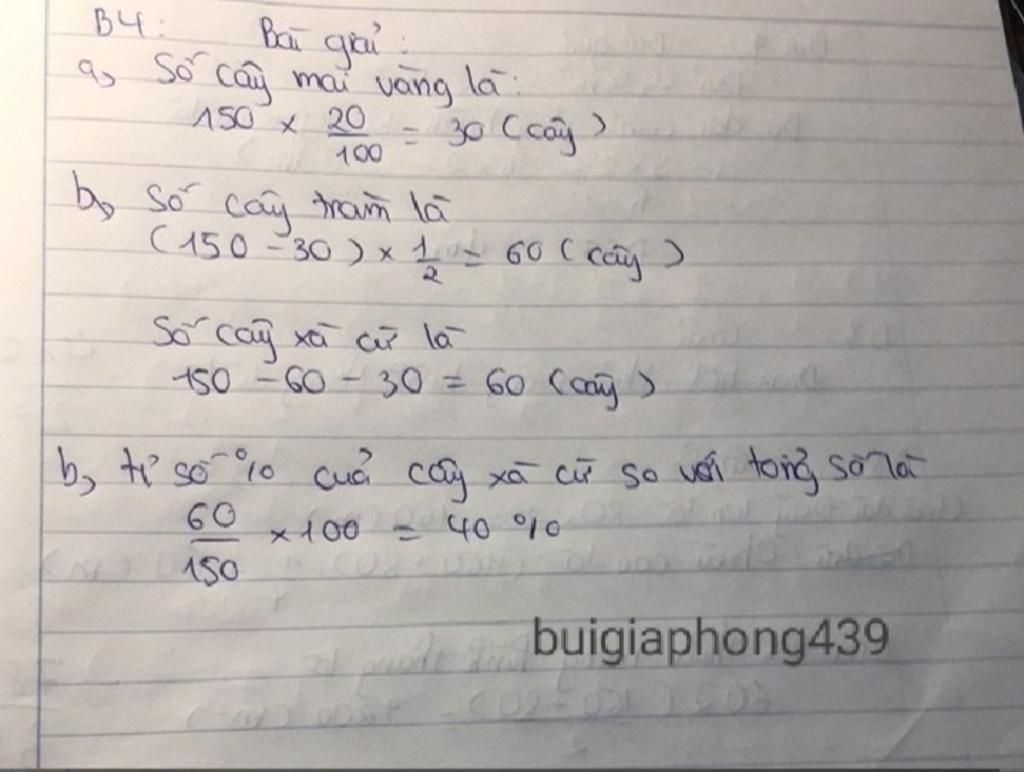 B4: Bài giải:
a, Số cây mai vàng là:
150 × 20/100 = 30 (cây)
b, Số cây tràm là
(150 - 30) × 1/2 = 60 (cây)
Số cây xà cừ là
150 - 60 - 30 = 60 (cây)
b, tỉ số % của cây xà cừ so với tổng số là
60/150 × 100 = 40 %
buigiaphong439